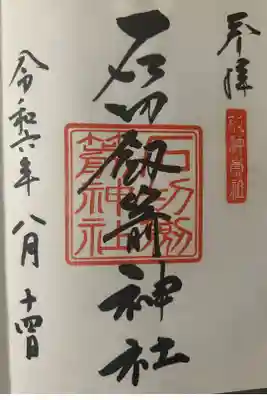 奉拝
石切劔箭神社
石切劔箭神社
令和六年八月十四日